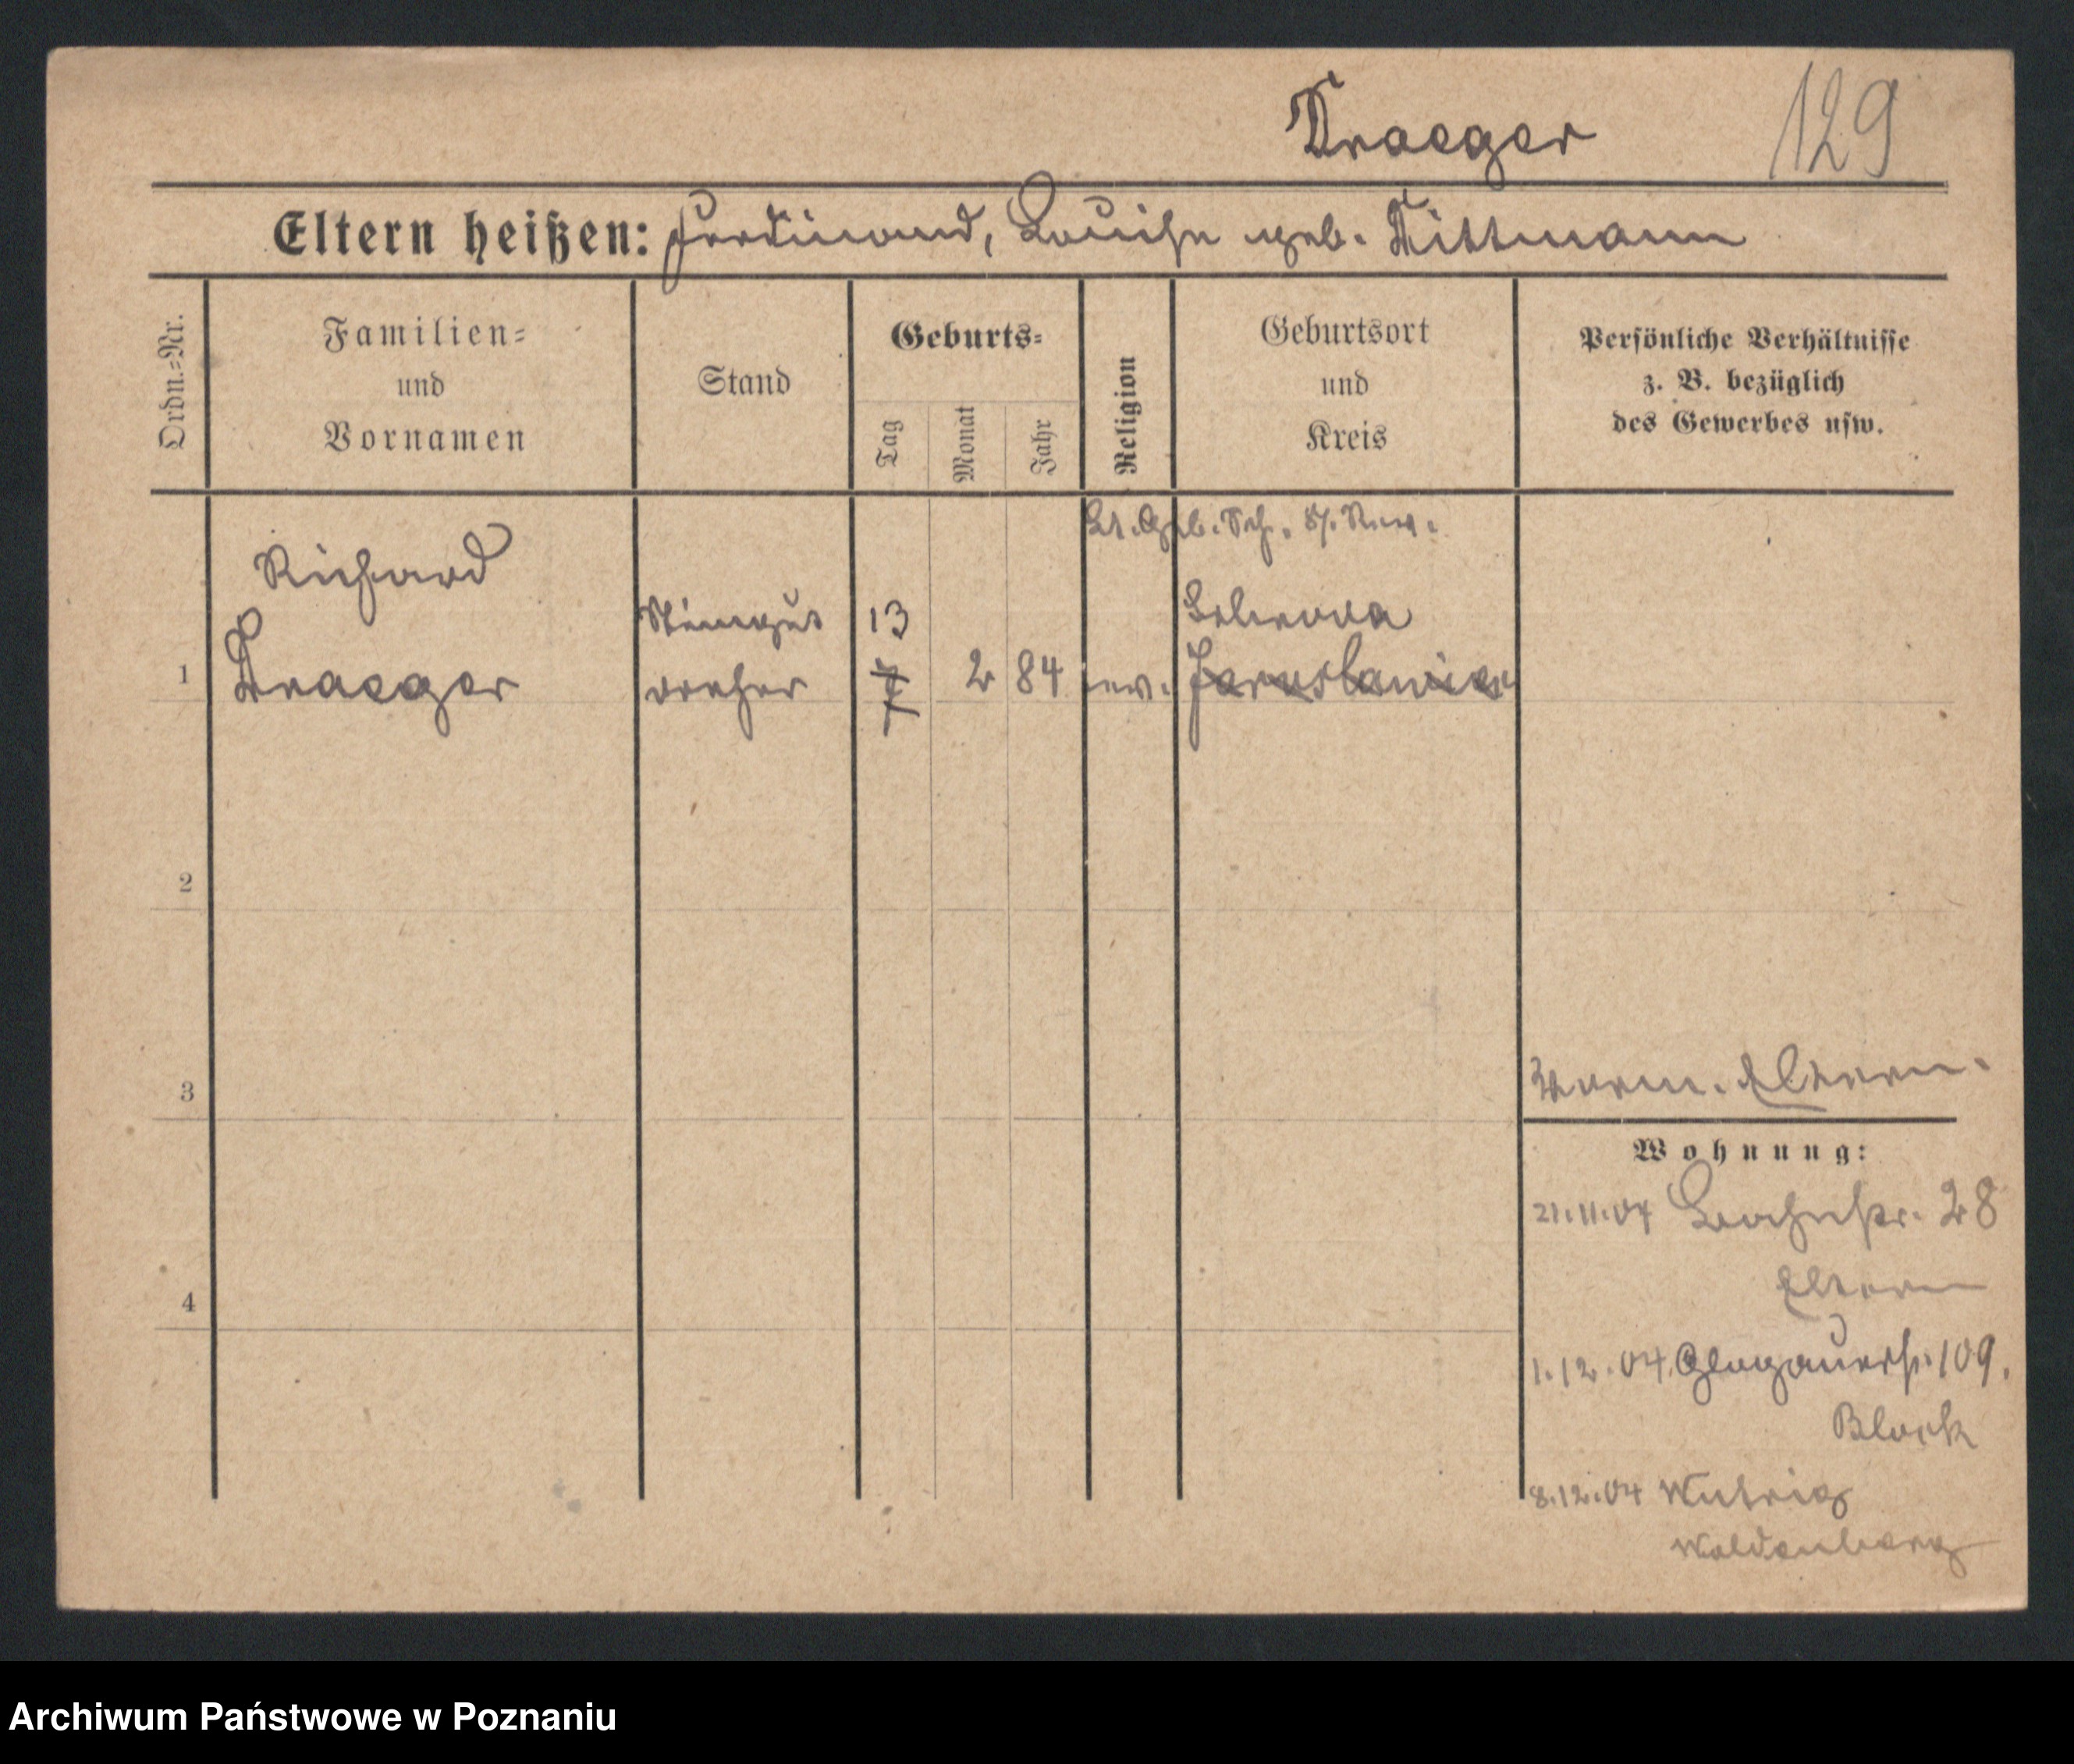 Draeger 129
Eltern heißen: Ferdinand, Louise geb. Dittmann
Ordn.=Nr.
Familien=
und
Vornamen
Stand
Geburts=
Tag
Monat
Jahr
Religion
Geburtsort
und
Kreis
Persönliche Verhältnisse
z. B. bezüglich
des Gewerbes usw.
Lt. Geb. Sch.
Richard
13
1 Draeger dreher 2 84 ev. Jaroslawiec
2
3
Eltern.
Wohnung:
4
21.11.04 Bahnstr. 28
Eltern
1.12.04 Glogauerstr. 109.
Block
8.12.04
Waldenberg
Archiwum Państwowe w Poznaniu